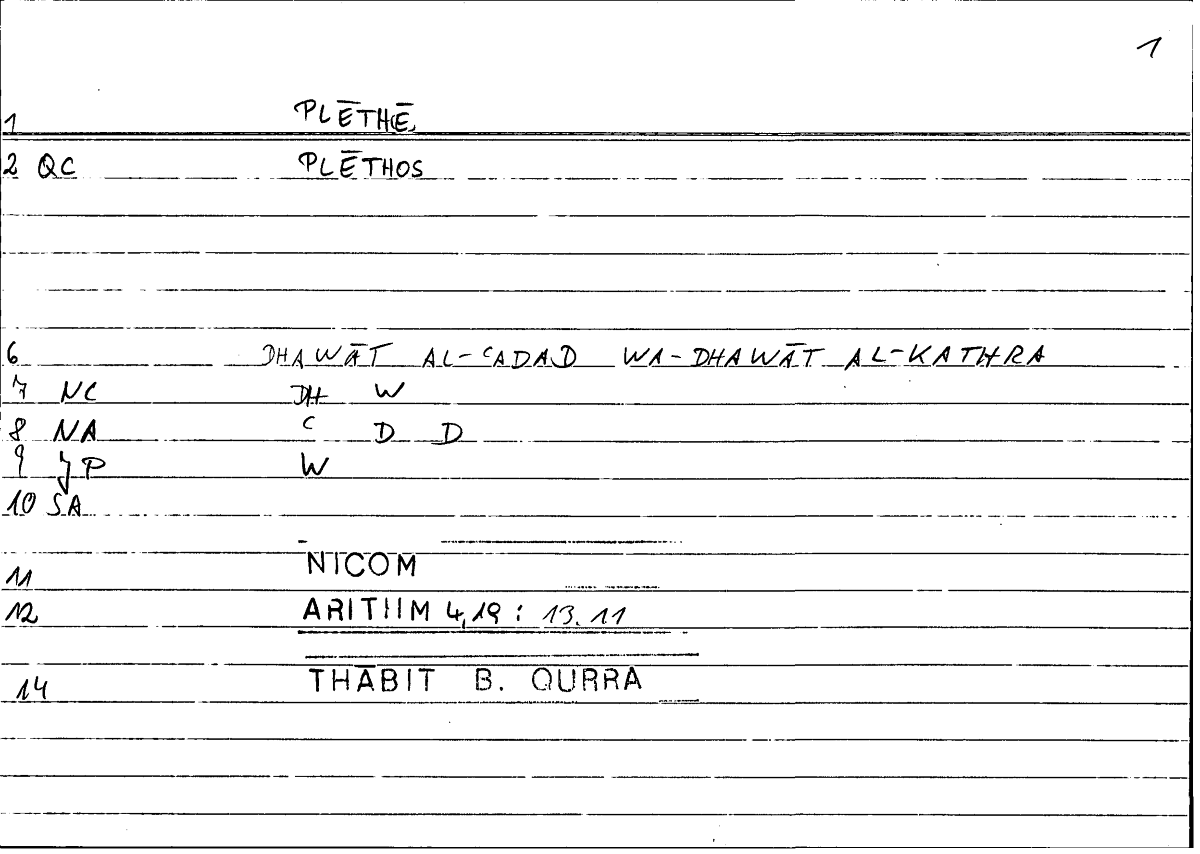 1
1 PLĒTHĒ
2 QC PLĒTHOS
6 DHAWĀT AL-ᶜADAD WA-DHAWĀT AL-KATHRA
7 NC DH W
8 NA ᶜ D D
9 JP W
10 SA
11 NICOM
12 ARITHM 4,19 : 13.11
14 THĀBIT B. QURRA